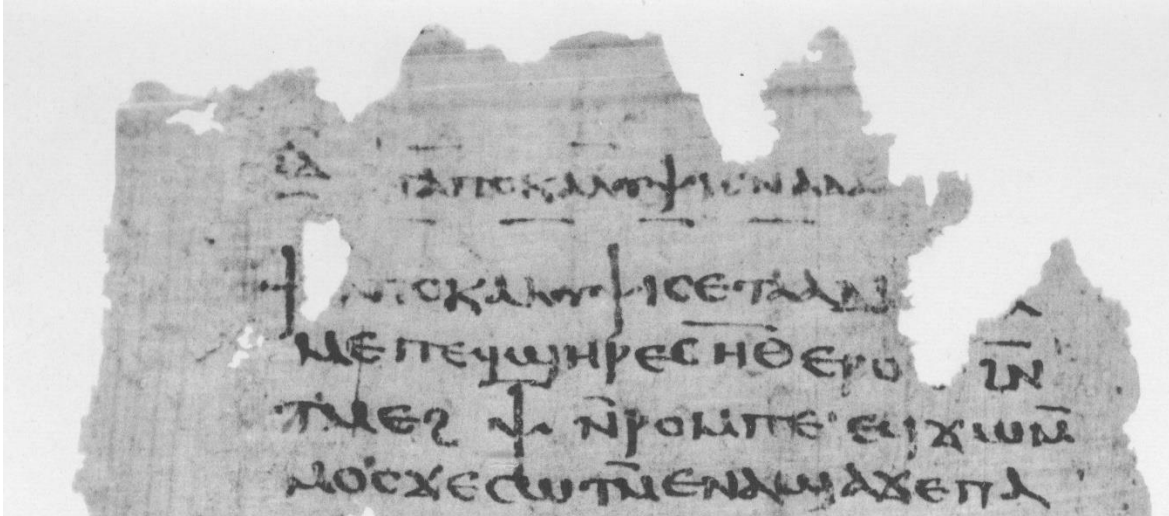 ⲝ̅ⲇ̅
ⲧⲁⲡⲟⲕⲁⲗⲩⲯⲓⲥ ⲛⲁⲇⲁ
ϯⲁⲡⲟⲕⲁⲗⲩⲯⲓⲥ ⲉⲧⲁⲁⲇⲁⲙ
ⲙⲉ ⲡⲉϥϣⲏⲣⲉ ⲥ̅ⲏ̅ⲑ̅ ⲉⲣⲟ ϩⲛ̅
ⲧⲙⲉϩ ⲯ̅ ⲛ̅ⲣⲟⲙⲡⲉ ⲉϥϫⲱ ⲙ̅
ⲙⲟⲥ ϫⲉ ⲥⲱⲧⲙ̅ ⲉⲛⲁϣⲁϫⲉ ⲡⲁ